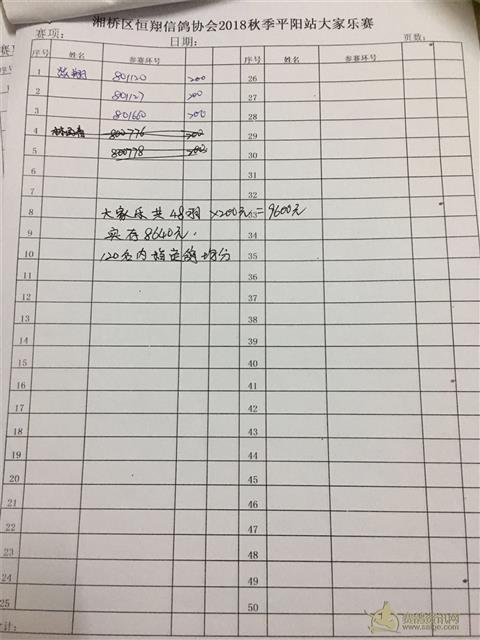 湘桥区恒翔信鸽协会2018秋季平阳站大家乐赛
赛项： 日期： 页数：
序号 姓名 参赛环号 序号 姓名 参赛环号
1 801120 200 26
2 801127 200 27
3 801660 200 28
4 800776 200 29
5 800778 200 30
6 31
7 32
8 大家乐共48羽×200元=9600元
9 实存8640元. 34
10 120名内指定鸽均分 35
11 36
12 37
13 38
14 39
15 40
16 41
17 42
18 43
19 44
20 45
21 46
22 47
23 48
24 49
25 50
合计：
www.saige.com